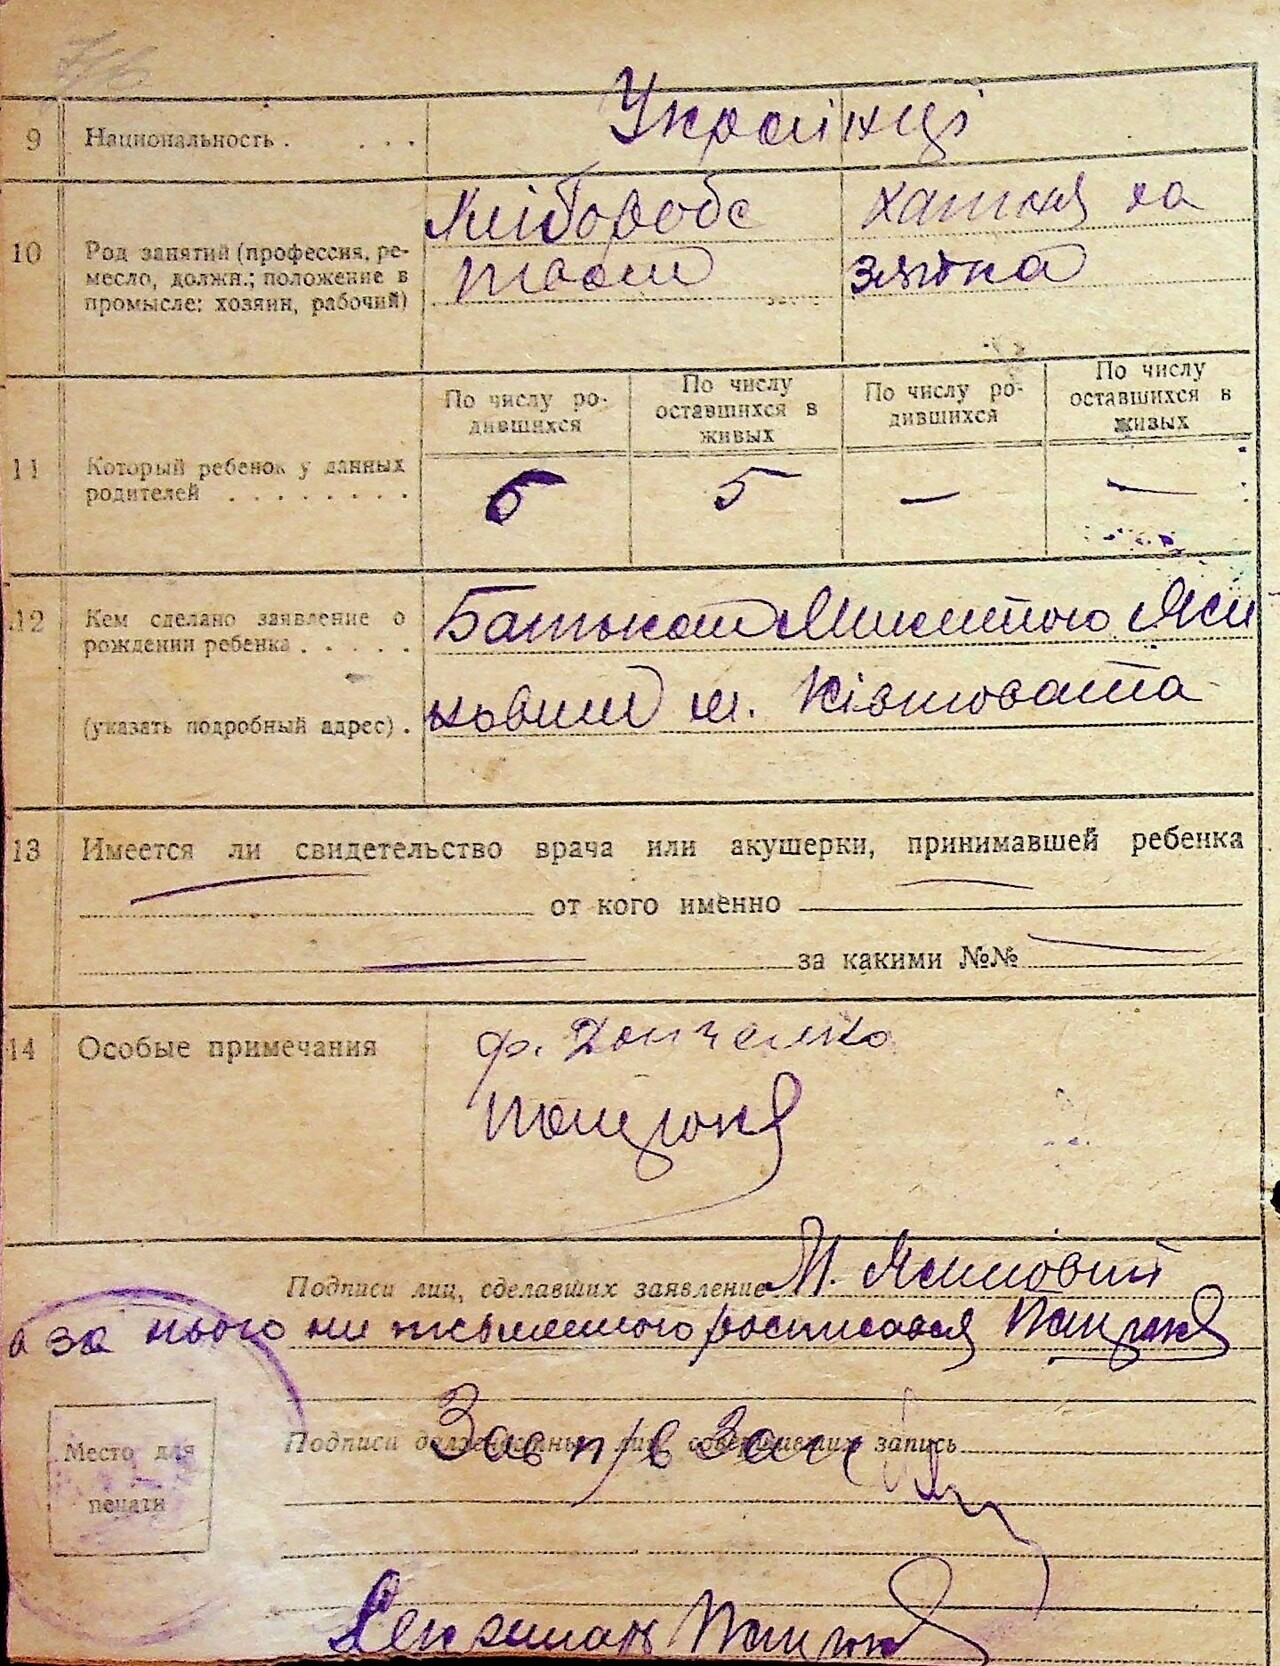 9 Национальность . . . . Українці
Хлібороб хатня ха
10 Род занятий (профессия, ре-
месло, должн.; положение в
промысле: хозяин, рабочий)
зяйка
По числу ро-
дившихся
По числу
оставшихся в
живых
По числу ро-
дившихся
По числу
оставшихся в
живых
11 Который ребенок у данных
родителей . . . . . . . .
6 5 — —
12 Кем сделано заявление о
рождении ребенка . . . . .
Батьком Микитою Яси
(указать подробный адрес) .
новим м. Жівтовата
13 Имеется ли свидетельство врача или акушерки, принимавшей ребенка
— от кого именно —
— за какими №№ —
14 Особые примечания
Подписи лиц, сделавших заявление М.
а за нього не письменного росписався
Подписи должностных лиц, совершивших запись
Место для
печати
Зав п/в Загс